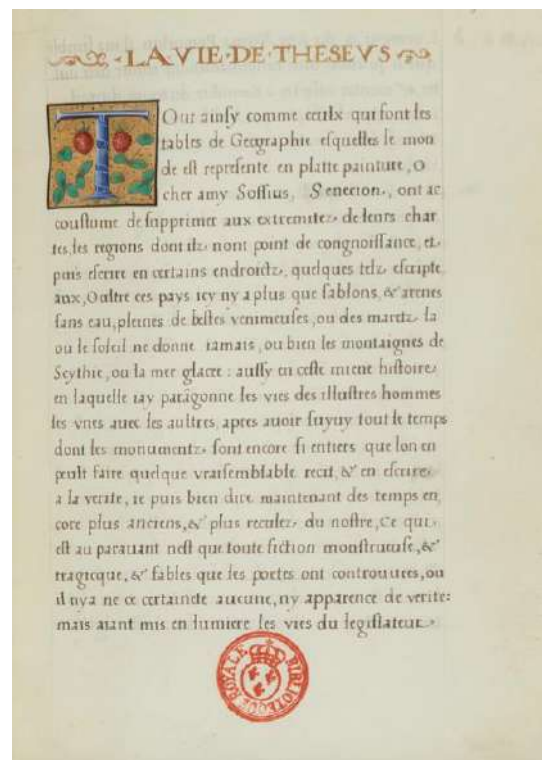 LA VIE·DE·THESEVS
TOut ainsy comme ceulx qui font les
tables de Geographie esquelles le mon
de est represente en platte painture, O
cher amy Sossius, Senecion, ont ac
coustume de supprimer aux extremitez de leurs char
tes, les regions dont ilz nont point de congnoissance, et
puis escrire en certains endroictz, quelques telz escripte
aux, Oultre ces pays icy ny a plus que sablons, & arenes
sans eau, pleines de bestes venimeuses, ou des maretz la
ou le soleil ne donne iamais, ou bien les montaignes de
Scythie, ou la mer glacee : aussy en ceste miene histoire
en laquelle iay paragonne les vies des illustres hommes
les vnes auec les aultres, apres auoir suyuy tout le temps
dont les monumentz sont encore si entiers que lon en
peult faire quelque vraisemblable recit, & en escrire
a la verite, ie puis bien dire maintenant des temps en
core plus anciens, & plus reculez du nostre, Ce qui
est au parauant nest que toute fiction monstrueuse, &
tragicque, & fables que les poetes ont controuuees, ou
il nya ne certaincte aucune, ny apparence de verite:
mais aiant mis en lumiere les vies du legislateur
BIBLIOTEQUE ROYALE